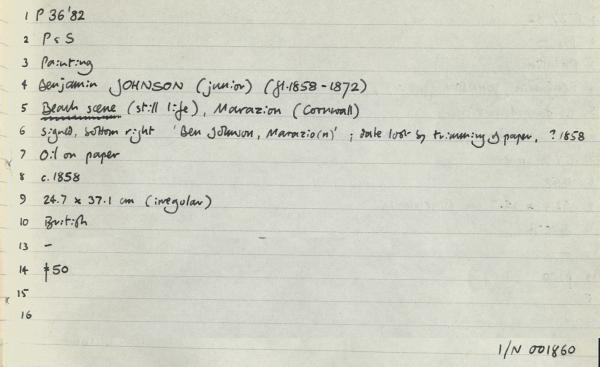 1 P 36'82
2 P & S
3 Painting
4 Benjamin JOHNSON (junior) (fl.1858-1872)
5 Beach scene (still life), Marazion (Cornwall)
6 signed, bottom right 'Ben Johnson, Marazio(n)' ; date lost by trimming of paper, ? 1858
7 Oil on paper
8 c.1858
9 24.7 x 37.1 cm (irregular)
10 British
13 -
14 50
15
16
1/N 001860